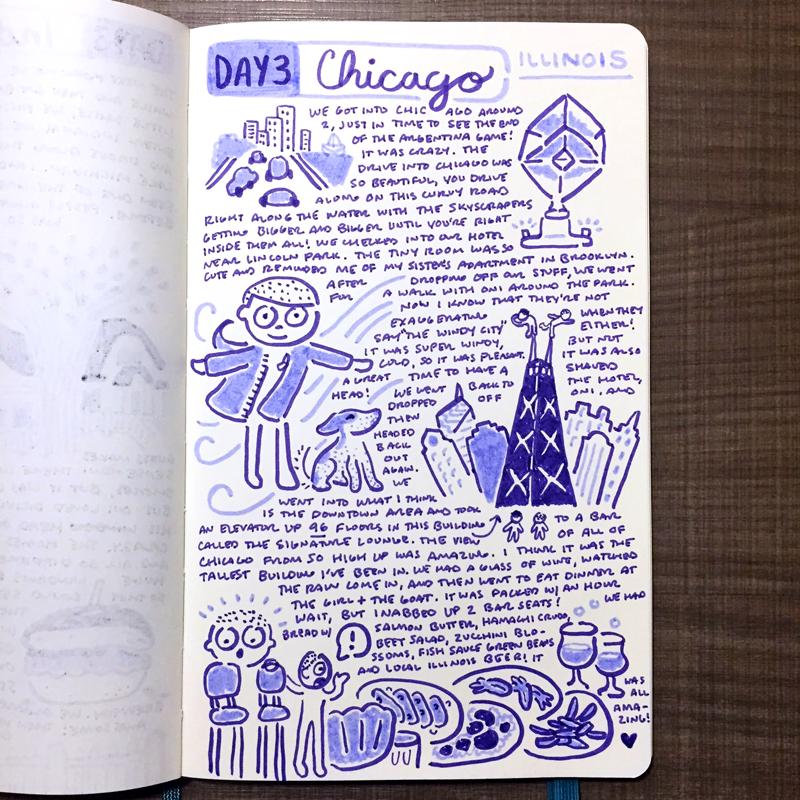 DAY 3 Chicago ILLINOIS
WE GOT INTO CHICAGO AROUND
2, JUST IN TIME TO SEE THE END
OF THE ARGENTINA GAME!
IT WAS CRAZY. THE
DRIVE INTO CHICAGO WAS
SO BEAUTIFUL, YOU DRIVE
ALONG ON THIS CURVY ROAD
RIGHT ALONG THE WATER WITH THE SKYSCRAPERS
GETTING BIGGER AND BIGGER UNTIL YOU'RE RIGHT
INSIDE THEM ALL! WE CHECKED INTO OUR HOTEL
NEAR LINCOLN PARK. THE TINY ROOM WAS SO
CUTE AND REMINDED ME OF MY SISTER'S APARTMENT IN BROOKLYN.
AFTER DROPPING OFF OUR STUFF, WE WENT
FOR A WALK WITH ONI AROUND THE PARK.
NOW I KNOW THAT THEY'RE NOT
EXAGGERATING WHEN THEY
SAY "THE WINDY CITY" EITHER!
IT WAS SUPER WINDY, BUT NOT
COLD, SO IT WAS PLEASANT. IT WAS ALSO
A GREAT TIME TO HAVE A SHAVED
HEAD! WE WENT BACK TO THE HOTEL,
DROPPED OFF ONI, AND
THEN
HEADED
BACK
OUT
AGAIN.
WE
WENT INTO WHAT I THINK
IS THE DOWNTOWN AREA AND TOOK
AN ELEVATOR UP 96 FLOORS IN THIS BUILDING TO A BAR
CALLED THE SIGNATURE LOUNGE. THE VIEW OF ALL OF
CHICAGO FROM SO HIGH UP WAS AMAZING. I THINK IT WAS THE
TALLEST BUILDING I'VE BEEN IN. WE HAD A GLASS OF WINE, WATCHED
THE RAIN COME IN, AND THEN WENT TO EAT DINNER AT
THE GIRL + THE GOAT. IT WAS PACKED W/ AN HOUR
WAIT, BUT I NABBED UP 2 BAR SEATS! WE HAD
BREAD W/ ! SALMON BUTTER, HAMACHI CRUDO,
BEET SALAD, ZUCCHINI BLO-
SSOMS, FISH SAUCE GREEN BEANS
AND LOCAL ILLINOIS BEER! IT
WAS
ALL
AMA-
ZING!